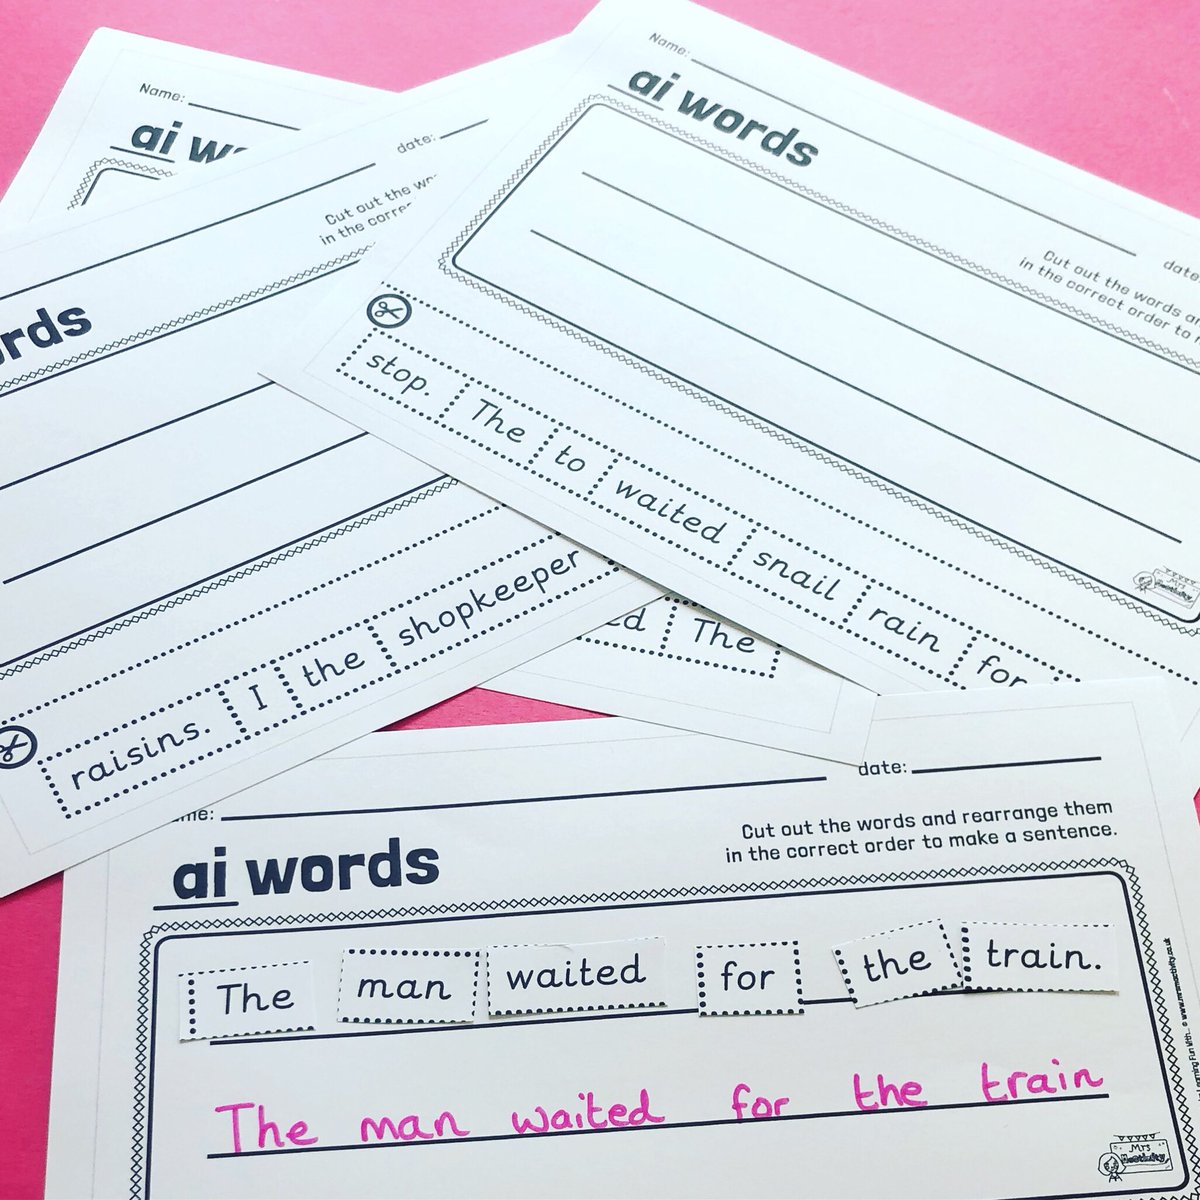 Name:
ai words
Name:
ai words
Cut out the words
in the correct order to
date:
stop. The to waited snail rain for
date:
Cut out the
in the
raisins. I the shopkeeper
The
date:
ai words
Cut out the words and rearrange them
in the correct order to make a sentence.
The man waited for the train.
The man waited for the train
Mrs